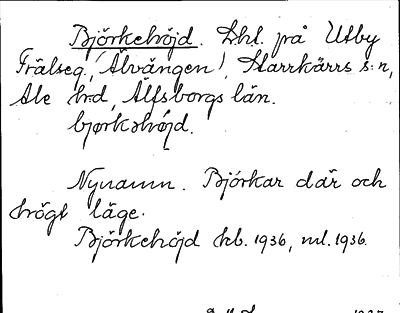 Björkehöjd. Lht. på Utby
Frälseg. (Älvängen), Starrkärrs s:n,
Ale hrd, Älfsborgs län.
bjørkəhøjd.
Nynamn. Björkar där och
högt läge.
Björkehöjd kb. 1936, ml. 1936.